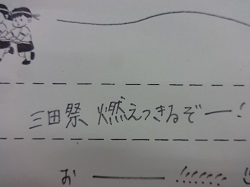 三田祭 燃えつきるぞー!
お――!!!!!!